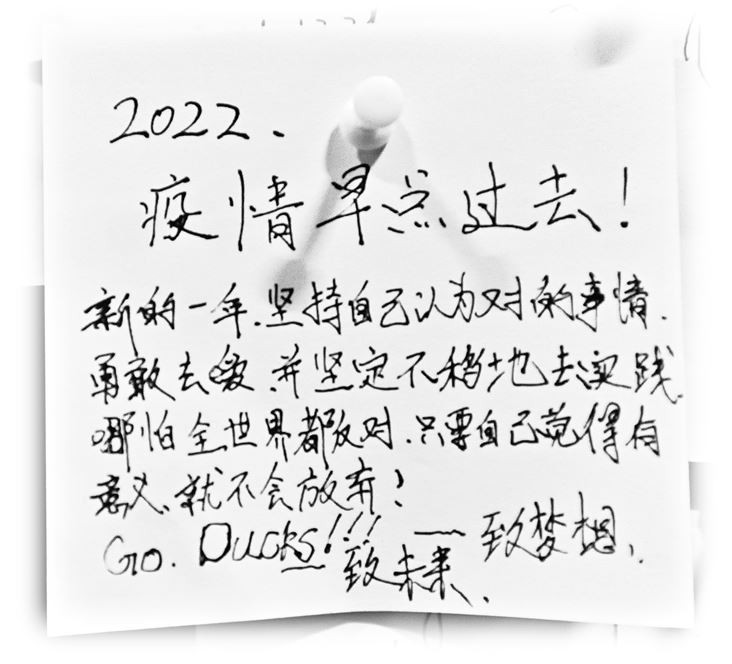 2022.
疫情早点过去！
新的一年.坚持自己认为对的事情.
勇敢去爱.并坚定不移地去实践.
哪怕全世界都反对.只要自己觉得有
意义.就不会放弃！
Go. Ducks!!! — 致梦想.
致未来.